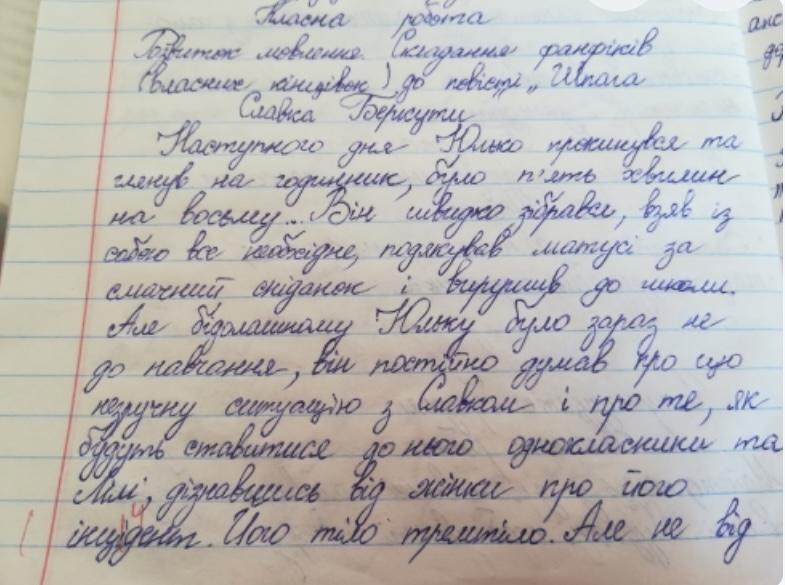 Класна робота
Розвиток мовлення. Складання фанфіків
(власних кінцівок) до повісті „Шпага
Славка Беркути"
Наступного дня Юлько прокинувся та
глянув на годинник, було п'ять хвилин
на восьму... Він швидко зібрався, взяв із
собою все необхідне, подякував матусі за
смачний сніданок і вирушив до школи.
Але бідолашному Юльку було зараз не
до навчання, він постійно думав про цю
незручну ситуацію з Славком і про те, як
будуть ставитися до нього однокласники та
Лілі, дізнавшись від жінки про його
інцідент. Його тіло тремтіло. Але не від